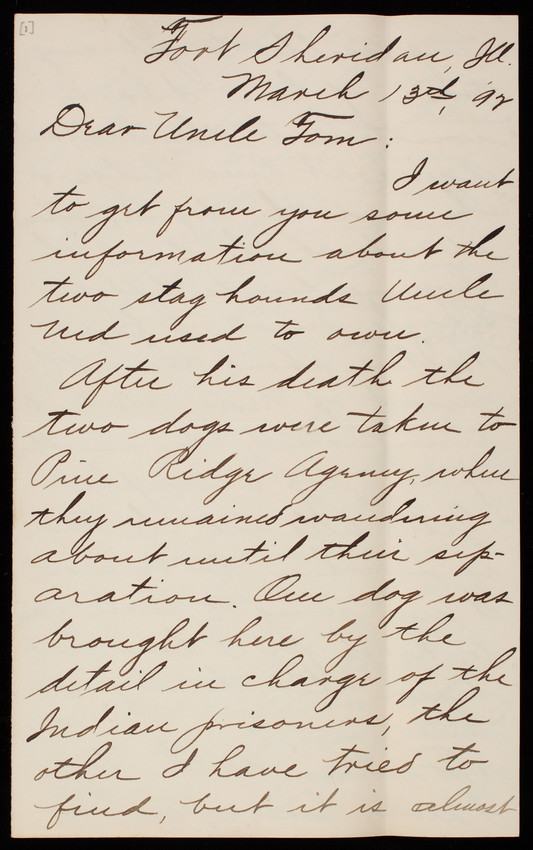 [1]
Fort Sheridan, Ill.
March 13d, 92
Dear Uncle Tom:
I want
to get from you some
information about the
two stag hounds Uncle
Ned used to own.
After his death the
two dogs were taken to
Pine Ridge Agency, where
they remained wandering
about until their sep-
aration. One dog was
brought here by the
detail in charge of the
Indian prisoners, the
other I have tried to
find, but it is almost